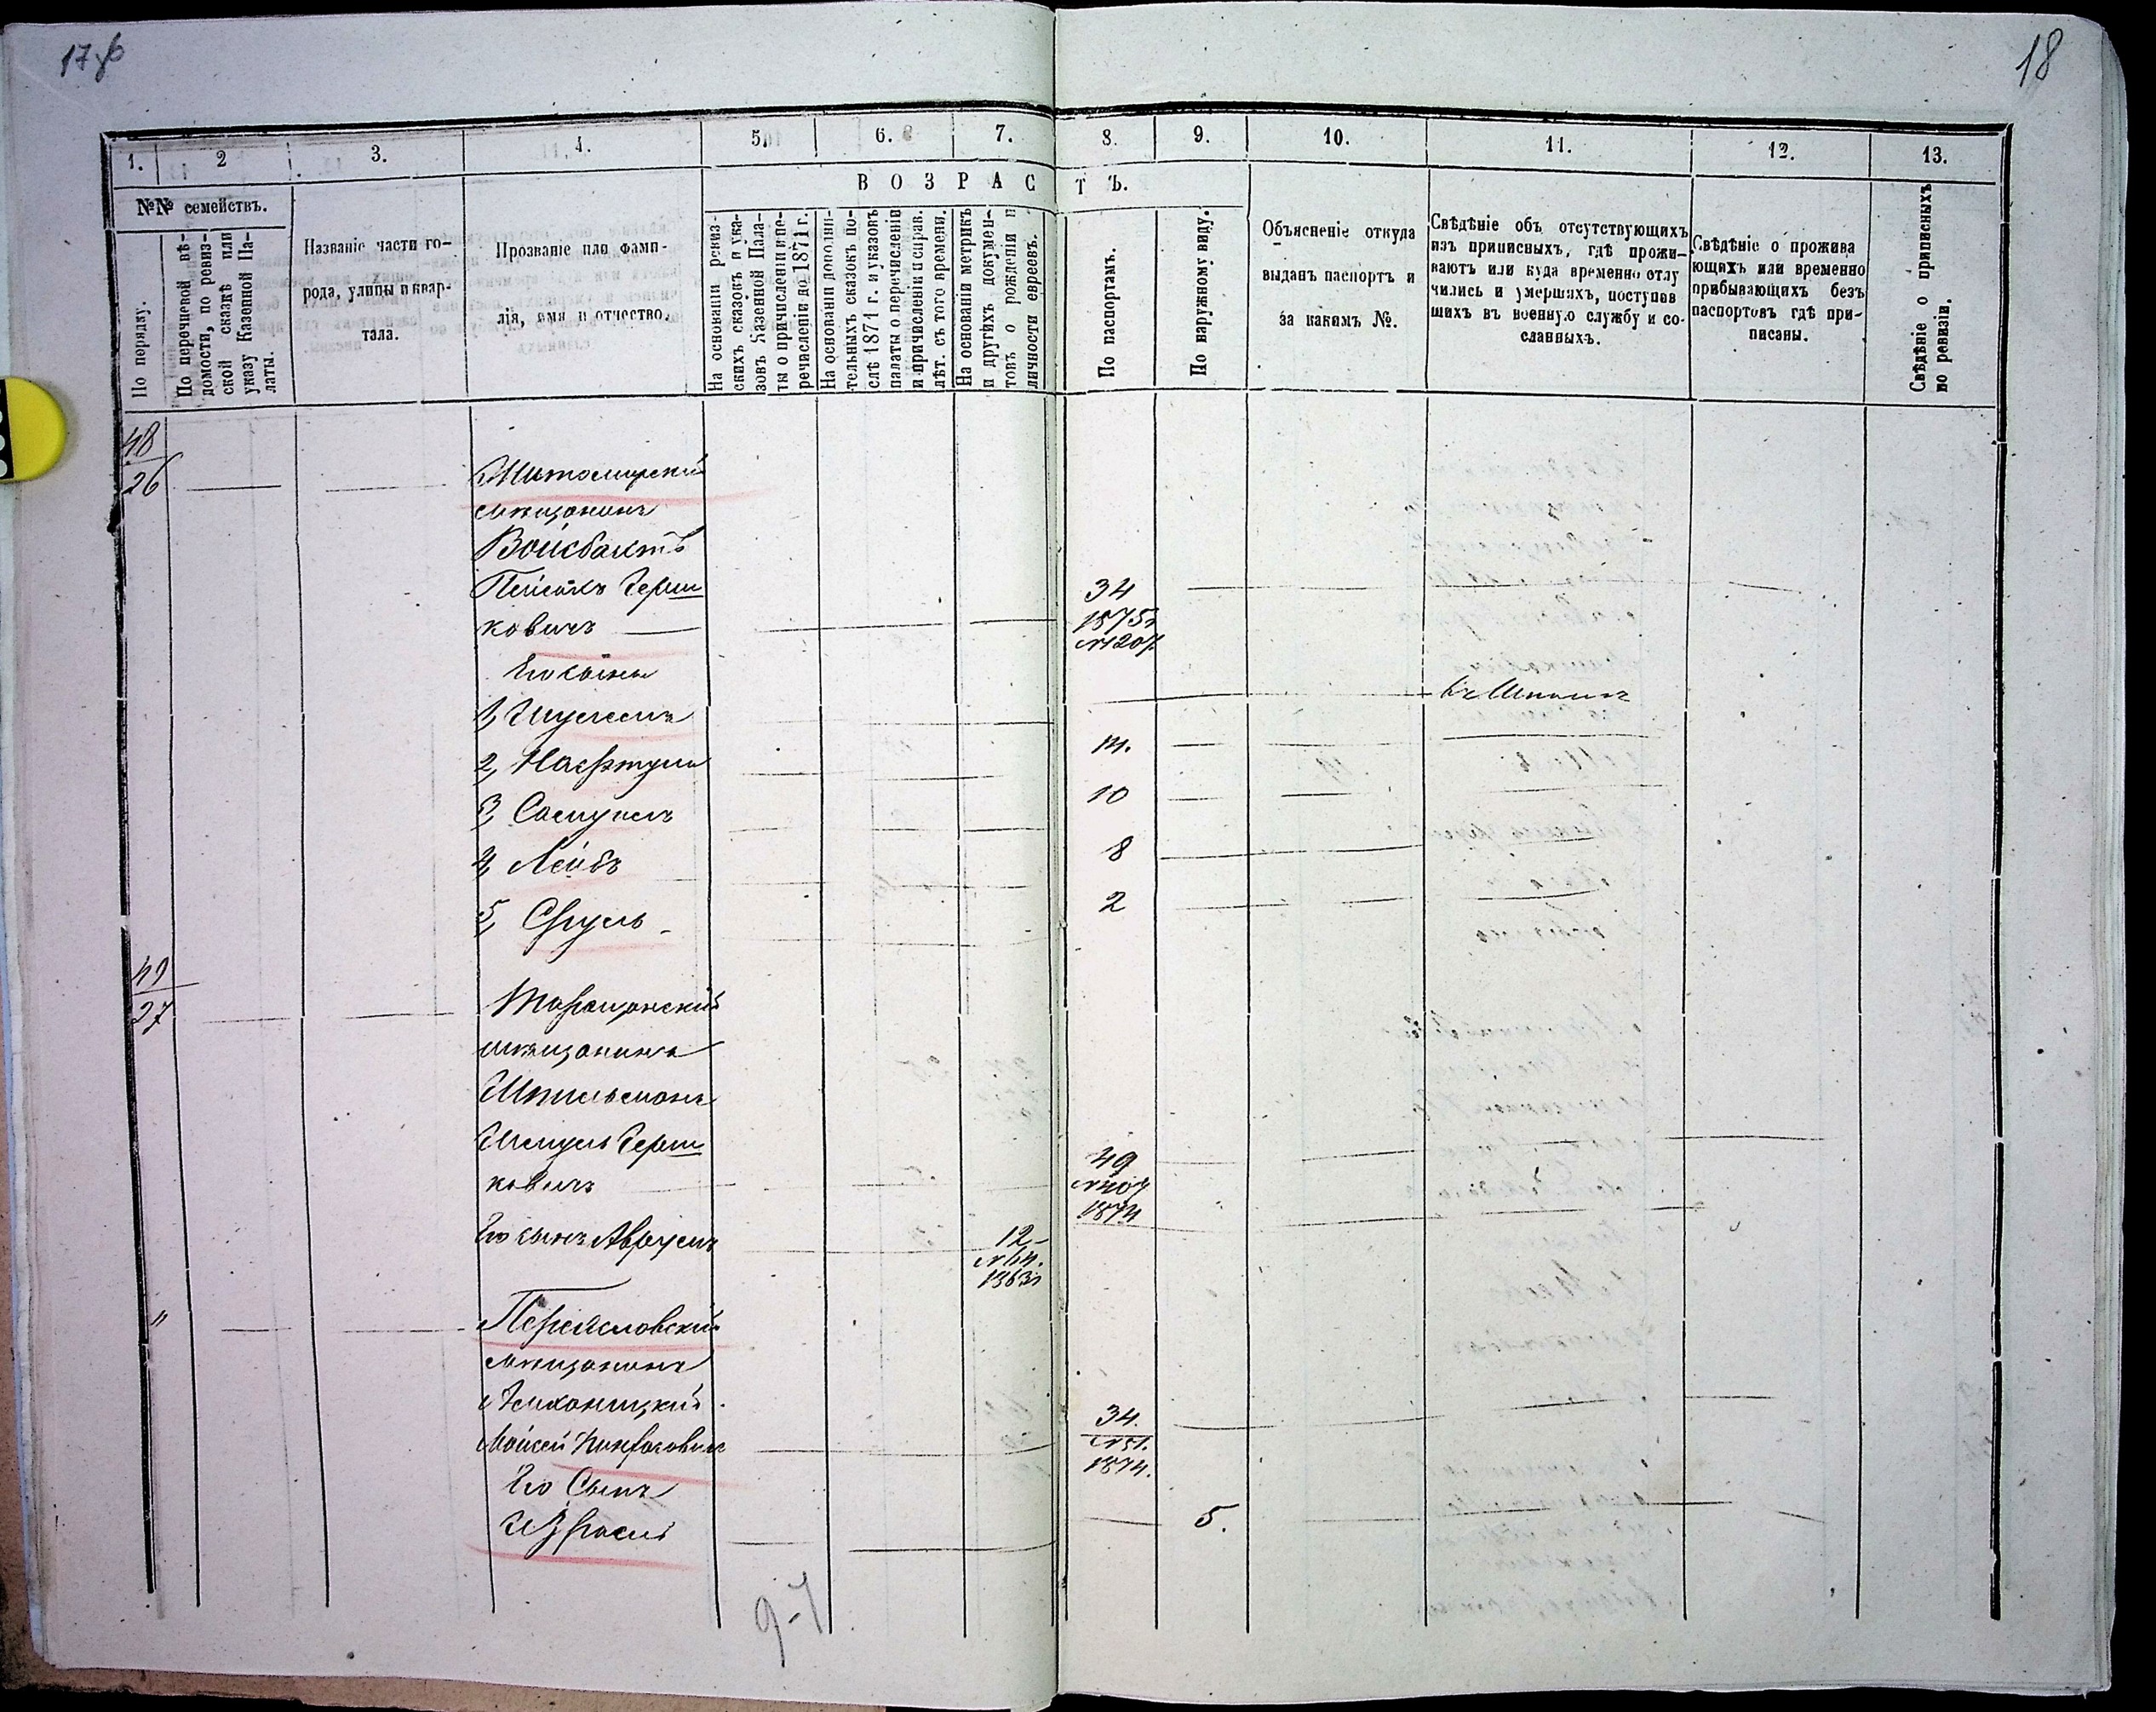 17об
18
1. 2 3. 4. 5. 6. 7. 8. 9. 10. 11. 12. 13.
№№ семействъ.
По порядку.
По перечневой вѣ-
домости, по ревиз-
ской сказкѣ или
указу Казенной Па-
латы.
Названіе части го-
рода, улицы и квар-
тала.
Прозваніе или фами-
лія, имя и отчество.
ВОЗРАСТЪ.
На основаніи ревиз-
скихъ сказокъ и ука-
зовъ Казенной Пала-
ты о причисленіи и пе-
речисленіе до 1871 г.
На основаніи дополни-
тельныхъ сказокъ по-
слѣ 1871 г. и указовъ
палаты о перечисленіи
и причисленіи и справ.
лѣт. съ того времени.
На основаніи метрикъ
и другихъ докумен-
товъ о рожденіи и
личности евреевъ.
По паспортамъ.
По наружному виду.
Объясненіе откуда
выданъ паспортъ и
за какимъ №.
Свѣдѣніе объ отсутствующихъ
изъ приписныхъ, гдѣ прожи-
ваютъ или куда временно отлу
чились и умершихъ, поступив
шихъ въ военную службу и со-
сланныхъ.
Свѣдѣніе о прожива
ющихъ или временно
прибывающихъ безъ
паспортовъ гдѣ при-
писаны.
Свѣдѣніе о приписныхъ
по ревизіи.
48
26
Житомирскій
мѣщанинъ
Войсбактъ
Герш
ковичъ
34
1875г
№1207
Его сыны
1,
2, Нафтули
14.
3, Самуилъ
10
4, Лейбъ
8
5, Сруль
2
49
27
Таращанскій
мѣщанинъ
Шпильманъ
Шмуль Герш
ковичъ
49
№407
1874
Его сынъ Аврумъ
12
№64.
1863г
"
Переяславскій
мѣщанинъ
Моисей
34.
№51.
1874.
Его Сынъ
Израиль
5.
9-7